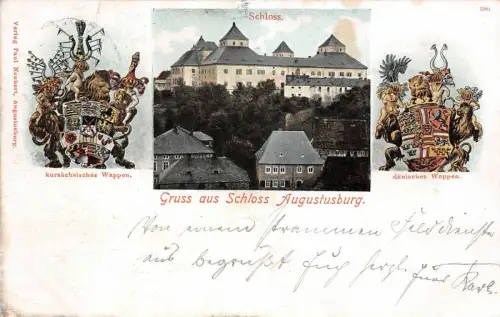 Schloss.
Verlag Paul Neubert, Augustusburg.
kursächsisches Wappen.
dänisches Wappen.
Gruss aus Schloss Augustusburg.
Von einem strammen Felddienste
aus begrüßt Euch herzl. Euer Karl.